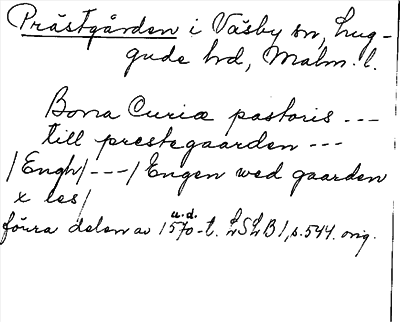 Prästgården i Väsby sn, Lug-
gude hd, Malm. l.
Bona Curiæ pastoris ---
till prestegaarden ---
/Engh/---/Engen wed gaarden
x les/
u.d.
förra delen av 1570-t. LSLB I, s. 544. orig.